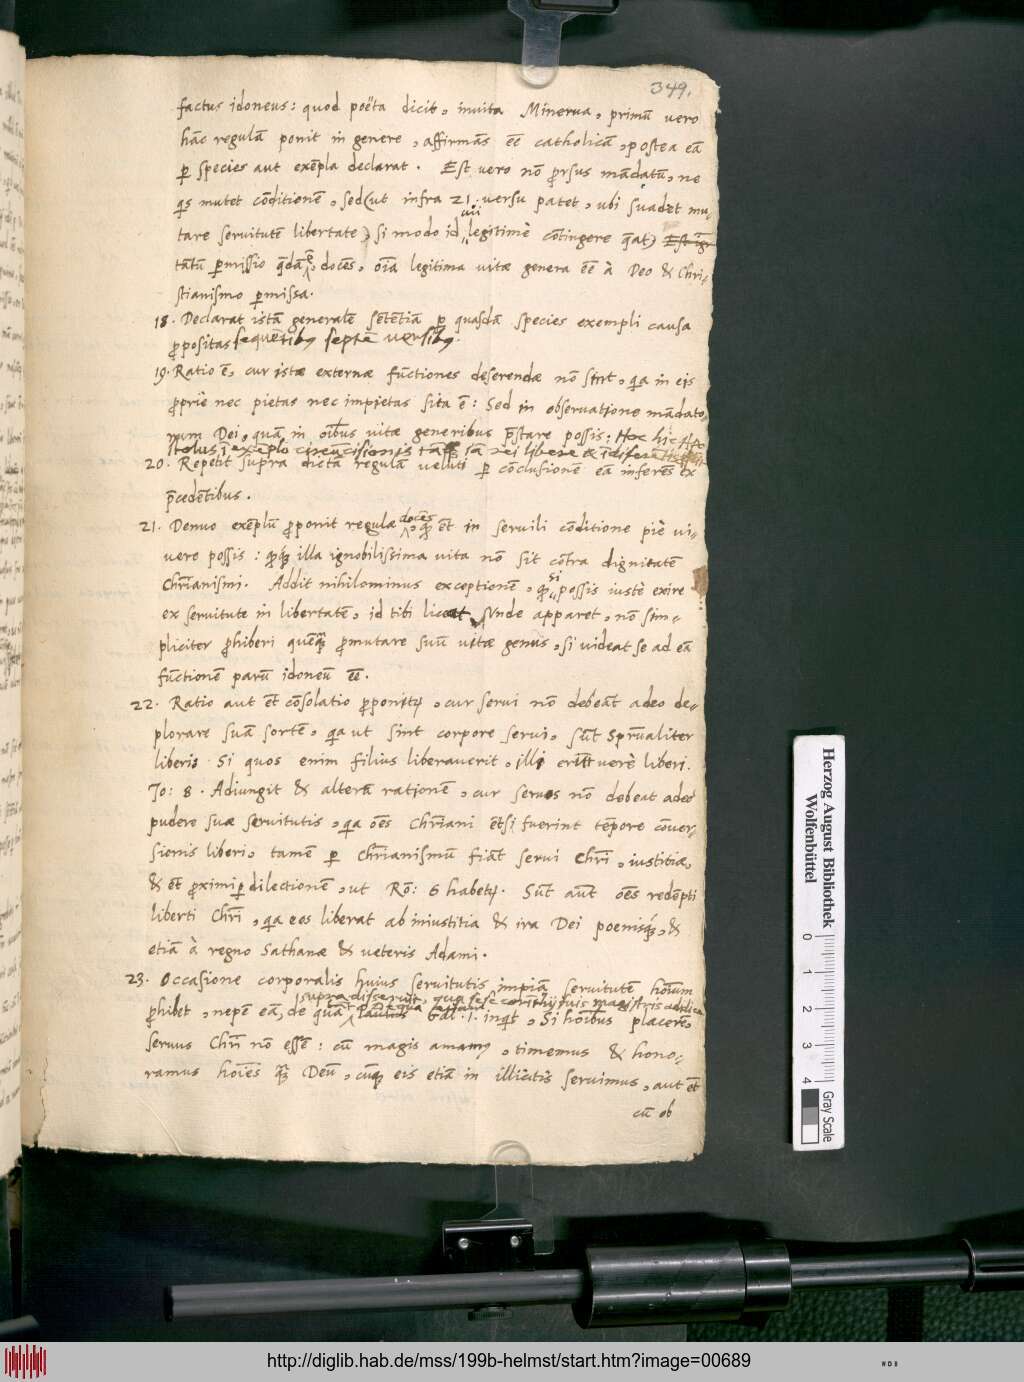 349.
factus idoneus: quod poëta dicit, invita Minerva, primũ vero
hãc regulã ponit in genere, affirmãs eẽ catholicã, postea eã
p species aut exẽpla declarat. Est vero nõ prorsus mãdatũ, ne
qs mutet cõditionẽ, sed (ut infra 21. versu patet, ubi suadet mu-
tare servitutẽ libertate) si modo id legitimè cõtingere q̃at)
tãtũ p̃missio q̃dã, docẽs, oĩa legitima vitæ genera eẽ à Deo & Chri-
stianismo p̃missa.
18. Declarat istã generalẽ sẽtẽtiã p quasdã species exempli causa
propositas sequẽtibus septẽ versibus.
19. Ratio ẽ, cur istæ externæ fũctiones deserendæ nõ sint, q̃a in eis
propriè nec pietas nec impietas sita ẽ: Sed in observatione mãdato-
rum Dei, quã in oĩbus vitæ generibus p̃stare possis: Hoc hic Apo-
stolus ĩ exẽplo circũcisionis
20. Repetit supra dictã regulã veluti p cõclusionẽ eã inferẽs ex
p̃cedẽtibus.
21. Denuo exẽplũ proponit regulæ docẽs, qđ ẽt in servili cõditione piè vi-
vere possis: q̃q̃ illa ignobilissima vita nõ sit cõtra dignitatẽ
Chr̃ianismi. Addit nihilominus exceptionẽ, qđ si possis iustè exire
ex servitute in libertatẽ, id tibi liceat, Unde apparet, nõ sim-
pliciter prohiberi quẽq̃ promutare suũ vitæ genus, si videat se ad eã
fũctionẽ parũ idoneũ eẽ.
22. Ratio aut ẽt cõsolatio proponitur, cur servi nõ debeãt adeo de-
plorare suã sortẽ, q̃a ut sint corpore servi, sũt Spr̃ualiter
liberi. Si quos enim filius liberaverit, illi erũt verè liberi.
Jo: 8. Adiungit & alterã rationẽ, cur servos nõ debeat adeo
pudere suæ servitutis, q̃a oẽs Chr̃iani ẽtsi fuerint tẽpore cõver-
sionis liberi, tamẽ p Chr̃ianismũ fiãt servi Chr̃i, iustitiæ,
& ẽt proximi p dilectionẽ, ut Rõ: 6 habetur. Sũt aũt oẽs redẽpti
liberti Chr̃i, q̃a eos liberat ab iniustitia & ira Dei poenisq̃, &
etiã à regno Sathanæ & veteris Adami.
23. Occasione corporalis huius servitutis impiã servitutẽ hoĩum
prohibet, nẽpe eã, de qua supra disseruit, qua sese
Gal. 1. inqt, Si hoĩbus placerẽ,
servus Chr̃i nõ essẽ: cũ magis amamus, timemus & hono-
ramus hoĩes q̃ Deũ, cũq̃ eis etiã in illicitis servimus, aut ẽt
cũ ob
Herzog August Bibliothek
Wolfenbüttel
0 1 2 3 4
Gray Scale
http://diglib.hab.de/mss/199b-helmst/start.htm?image=00689